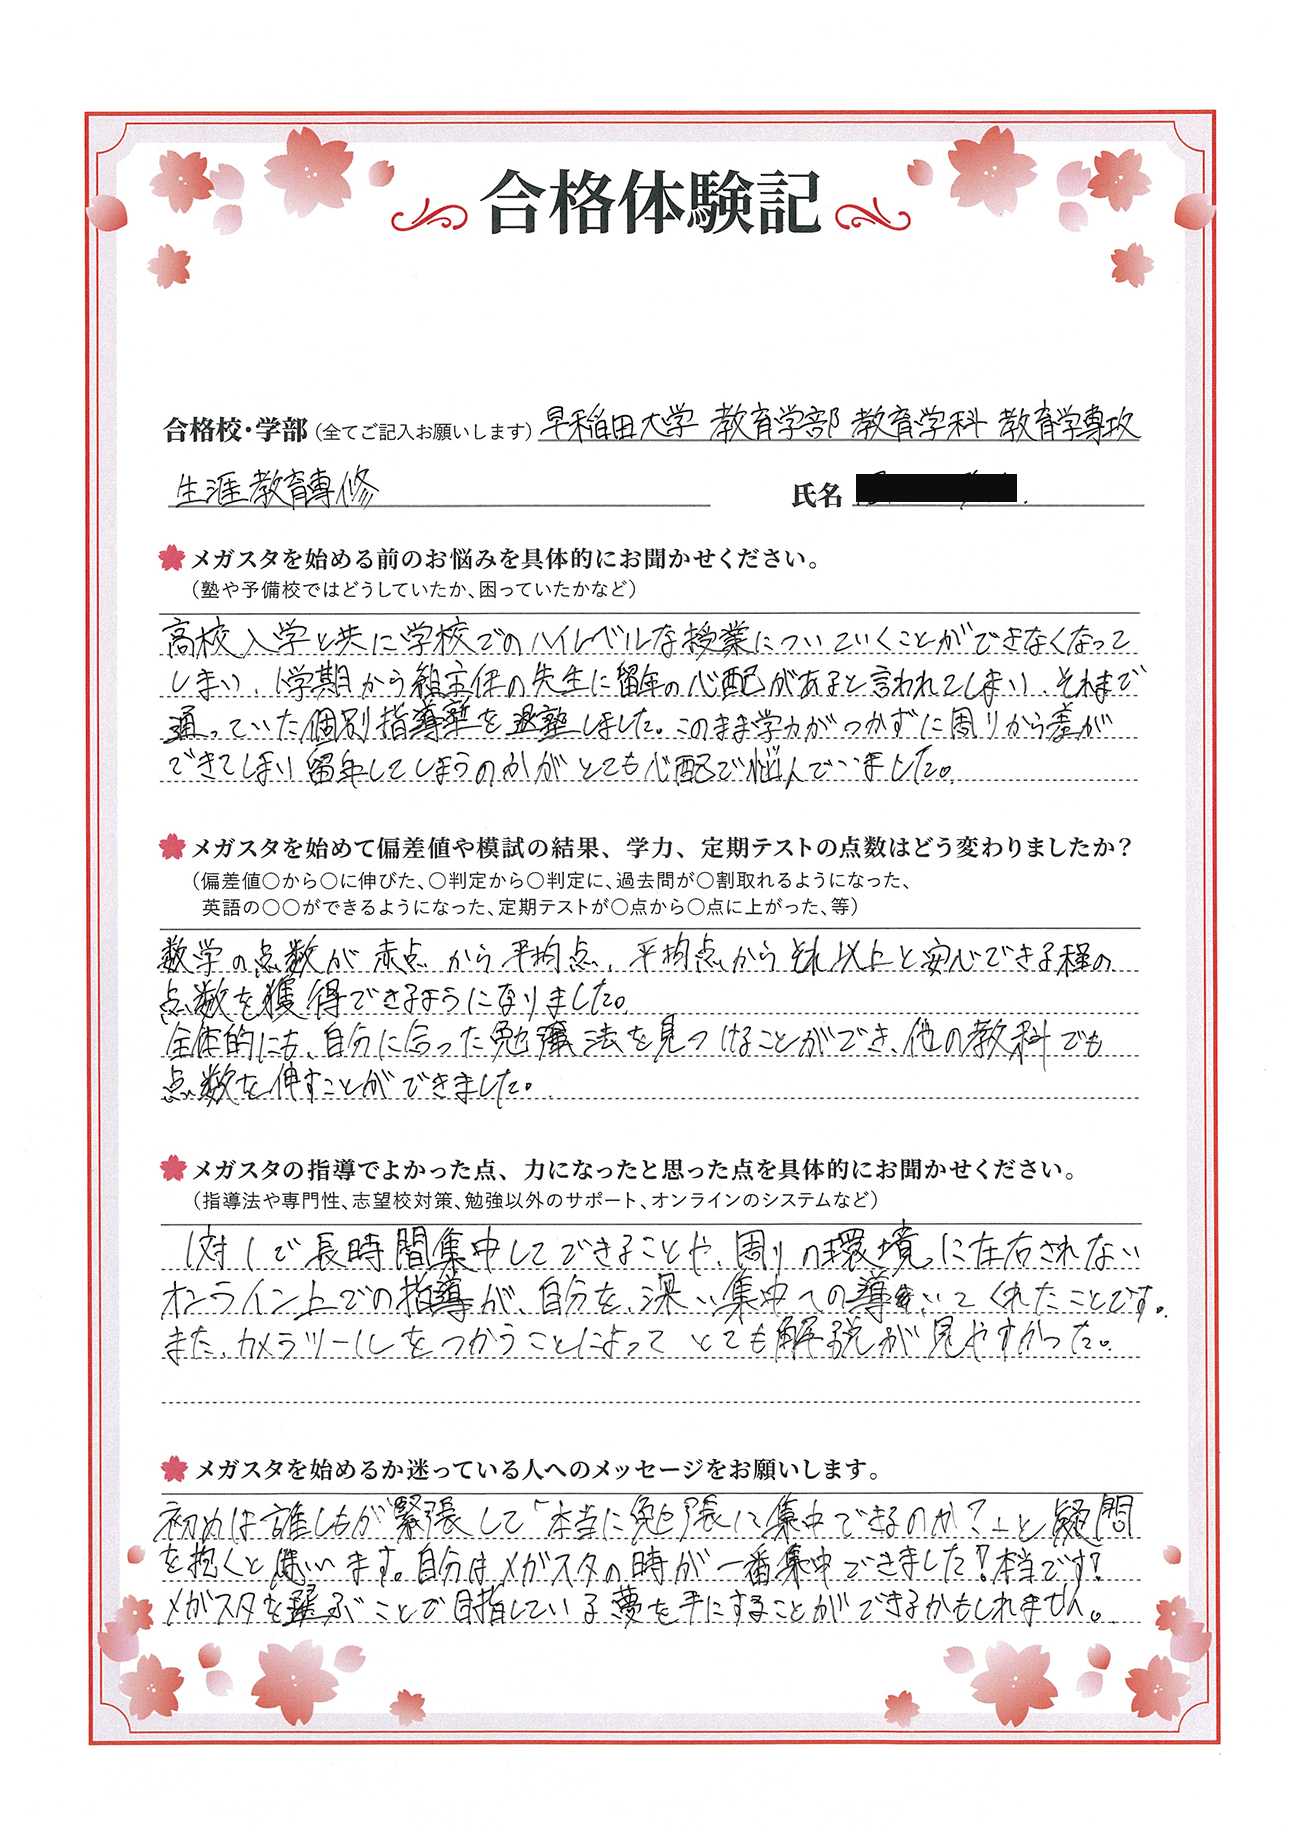 合格体験記
合格校・学部(全てご記入お願いします) 早稲田大学 教育学部 教育学科 教育学専攻
生涯教育専修 氏名
メガスタを始める前のお悩みを具体的にお聞かせください。
(塾や予備校ではどうしていたか、困っていたかなど)
高校入学と共に学校でのハイレベルな授業についていくことができなくなって
しまい、1学期から組主任の先生に留年の心配があると言われてしまい、それまで
通っていた個別指導塾を退塾しました。このまま学力がつかずに周りから差が
できてしまい留年してしまうのかがとても心配で悩んでいました。
メガスタを始めて偏差値や模試の結果、学力、定期テストの点数はどう変わりましたか?
(偏差値〇から〇に伸びた、〇判定から〇判定に、過去問が〇割取れるようになった、
英語の〇〇ができるようになった、定期テストが〇点から〇点に上がった、等)
数学の点数が赤点から平均点、平均点からそれ以上と安心できる程の
点数を獲得できるようになりました。
全体的にも、自分に合った勉強法を見つけることができ、他の教科でも
点数を伸すことができました。
メガスタの指導でよかった点、力になったと思った点を具体的にお聞かせください。
(指導法や専門性、志望校対策、勉強以外のサポート、オンラインのシステムなど)
1対1で長時間集中してできることや、周りの環境に左右されない
オンライン上での指導が、自分を深い集中への導いてくれたことです。
また、カメラツールをつかうことによってとても解説が見やすかった。
メガスタを始めるか迷っている人へのメッセージをお願いします。
初めは誰しもが緊張して「本当に勉強に集中できるのか?」と疑問
を抱くと思います。自分はメガスタの時が一番集中できました!本当です!
メガスタを選ぶことで目指している夢を手にすることができるかもしれません。